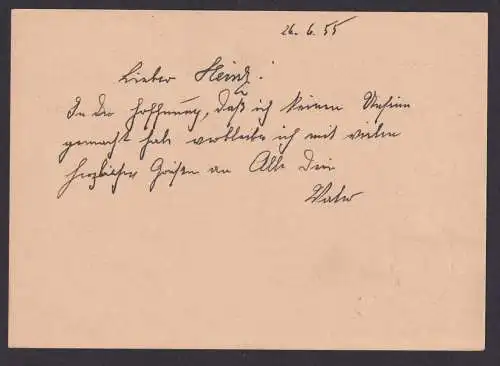 26. 6. 55
Lieber Heinz!
In der Hoffnung, daß ich keinen Unsinn
gemacht habe verbleibe ich mit vielen
herzlichen Grüßen an Alle Dein
Vater